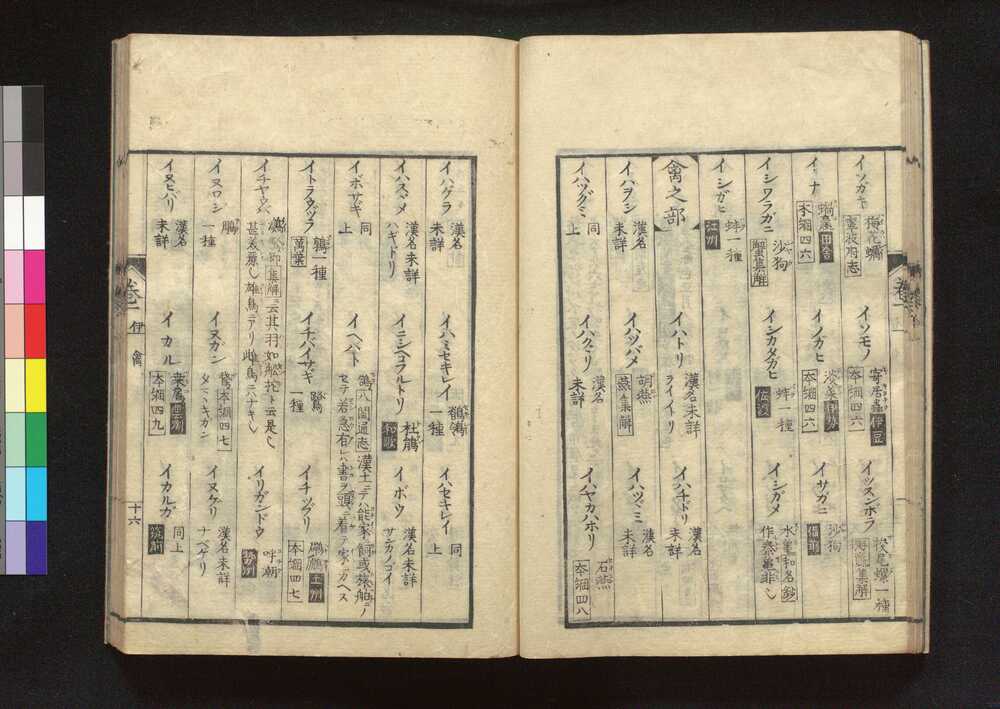 イソガキ 梅花蠣 寧波府志
イソモノ 寄居蟲 伊豆 本綱四六
イツスンボラ 梭尾螺一種
イナ 蝸螺 田舎 本綱四六
イノカヒ 淡菜 伊勢 本綱四六
イサガニ 沙狗 備前
イシワラガニ 沙狗 蟹集解
イシカタガヒ 蚌一種 佐渡
イシガメ 水亀 和名鈔 作秦亀非也
イシガヒ 蚌一種 江州
禽之部
イハトリ 漢名未詳 ライノトリ
イハチドリ 漢名未詳
イハヲシ 漢名未詳
イハツバメ 胡燕 燕集解
イハツヾミ 漢名未詳
イハツグミ 同上
イハクヾリ 漢名未詳
イハヤカハホリ 石燕 本綱四八
イハゲラ 漢名未詳
イハミセキレイ 鶺鴒一種
イハセキレイ 同上
イハスヾメ 漢名未詳 ハギマトリ
イニシヘコフルトリ 杜鵑 和歌
イボウ 漢名未詳 サンカノゴイ
イボサギ 同上
イヘバト 鴿 八閩通志 漢土ニテハ能家ニ飼或旅船ノ
セテ若急有レハ書ヲ頭ニ着テ家ニカヘス
イトラウヅラ 鶉一種 萬葉
イチハイサギ 鷺一種
イツチグリ 鸊鷉 土州 本綱四七
イチヤウバ
甚美麗也雄鳥ニアリ雌鳥ニハナキ也
イリガンドウ 呼潮 勢州
イヌワシ 鵰一種
イヌガン 鵞 本綱四七
イヌケリ 漢名未詳 ナベゲリ
イヌヒバリ 漢名未詳
イカル 桑鳸 雲州 本綱四九
イカルガ 同上 筑前
巻一 伊 禽
十六